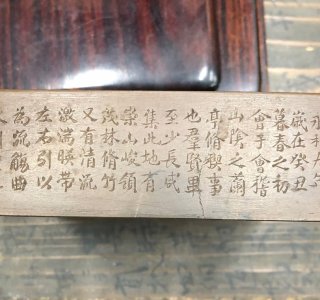 永和九年
歲在癸丑
暮春之初
會于會稽
山陰之蘭
亭脩禊事
也羣賢畢
至少長咸
集此地有
崇山峻領
茂林脩竹
又有清流
激湍暎帶
左右引以
為流觴曲